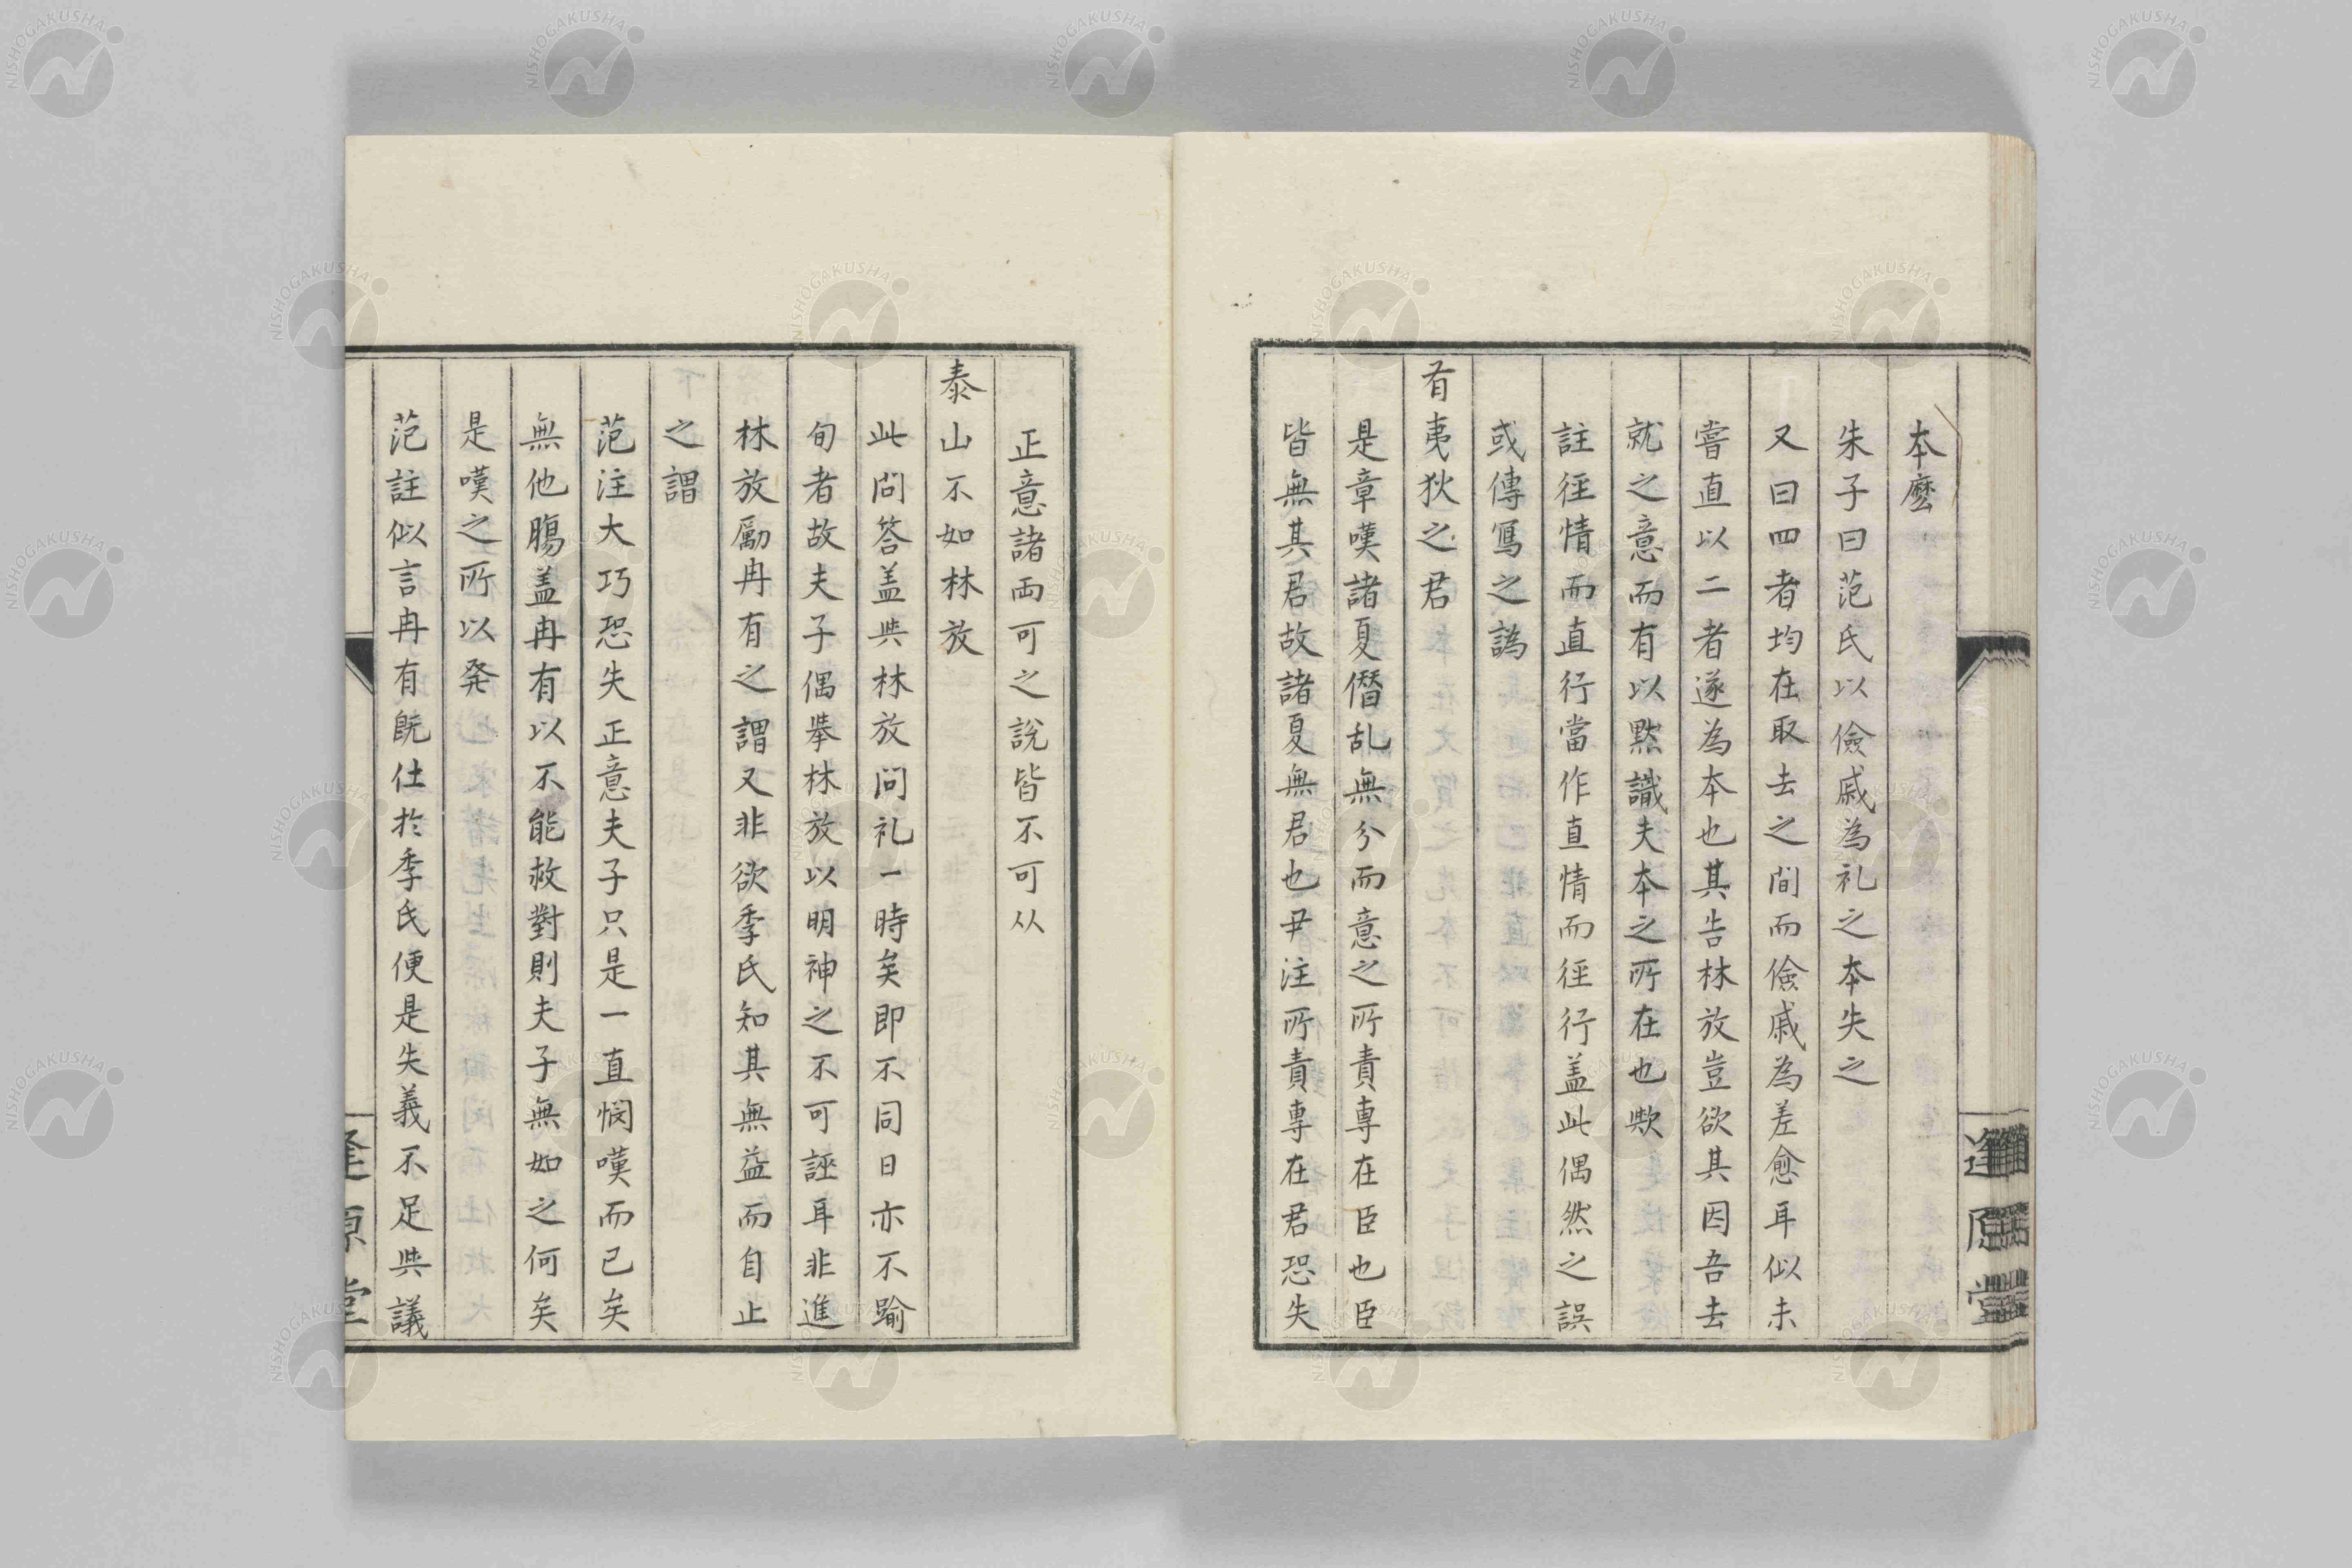 本麼
朱子曰范氏以儉戚為礼之本失之
又曰四者均在取去之間而儉戚為差愈耳似未
嘗直以二者遂為本也其告林放豈欲其因吾去
就之意而有以黙識夫本之所在也欤
註徑情而直行當作直情而徑行盖此偶然之誤
或傳寫之譌
有夷狄之君
是章嘆諸夏僭乱無分而意之所責専在臣也臣
皆無其君故諸夏無君也尹注所責専在君恐失
正意諸両可之説皆不可从
泰山不如林放
此問答盖与林放問礼一時矣即不同日亦不踰
旬者故夫子偶挙林放以明神之不可誣耳非進
林放勵冉有之謂又非欲季氏知其無益而自止
之謂
范注大巧恐失正意夫子只是一直憫嘆而已矣
無他腸盖冉有以不能救對則夫子無如之何矣
是嘆之所以発
范註似言冉有既仕於季氏便是失義不足与議
逢原堂
逢原堂
NISHOGAKUSHA